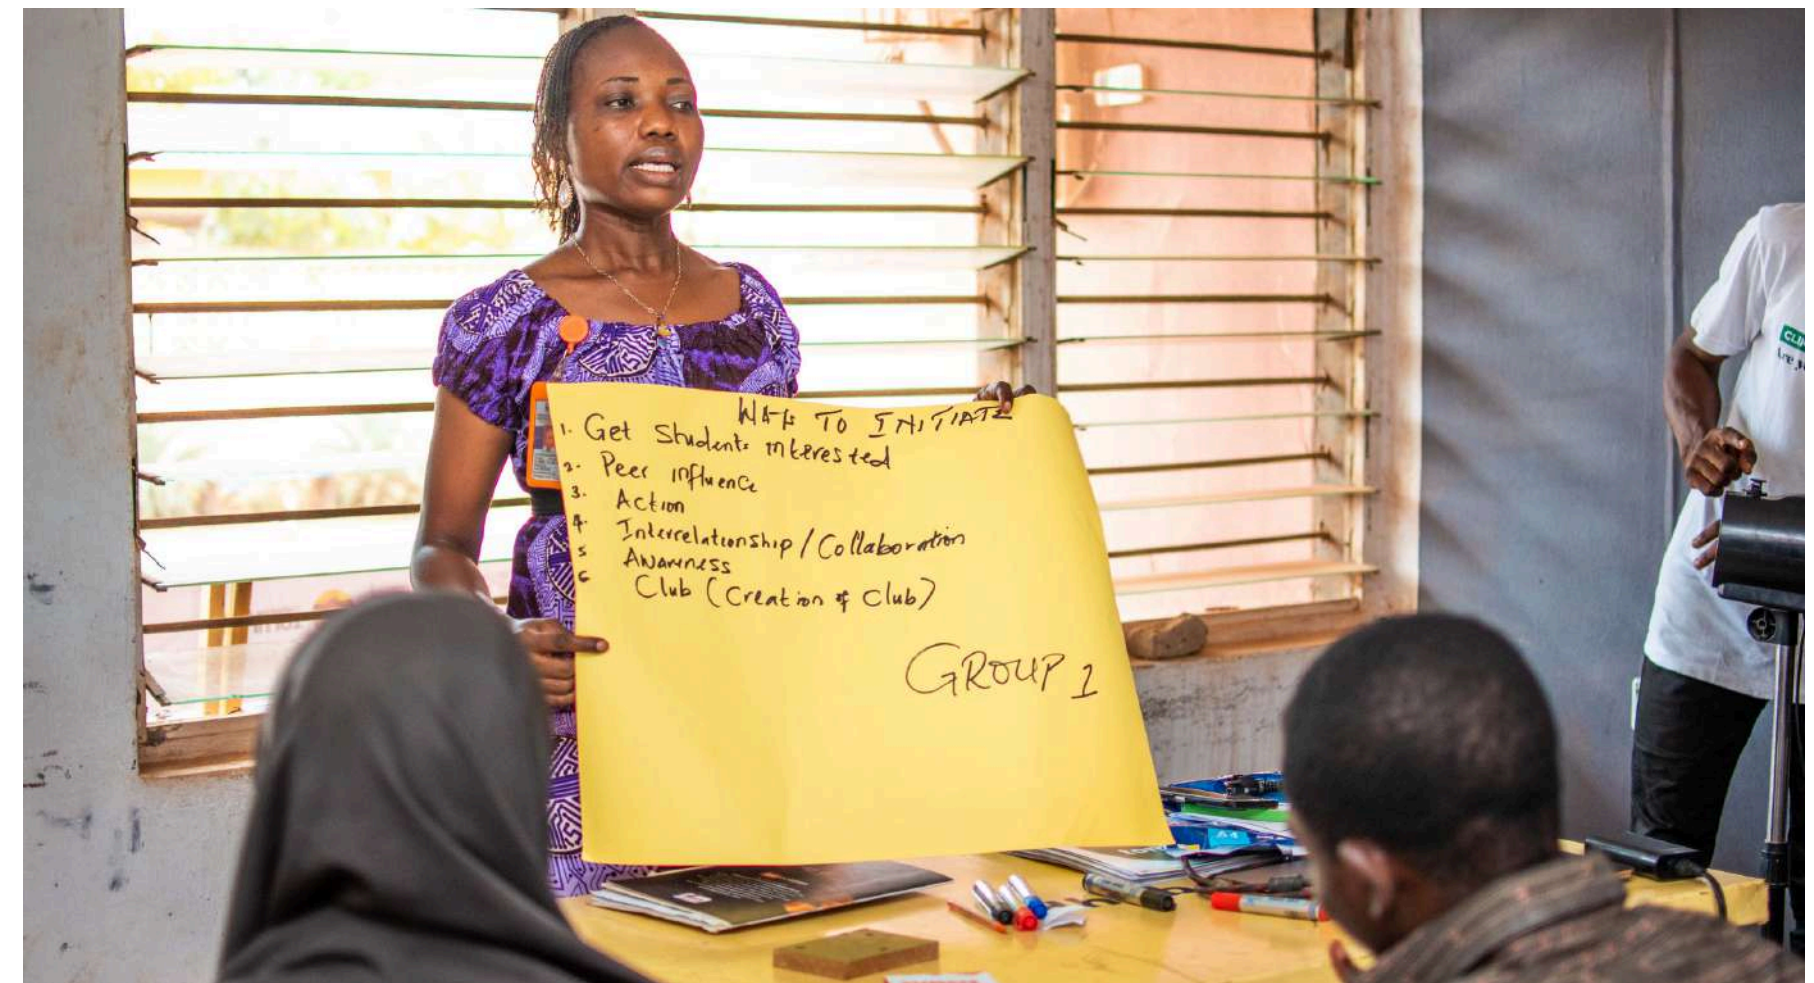 WAYS TO INITIATE
1. Get Students interested
2. Peer influence
3. Action
4. Interrelationship / Collaboration
5 Awareness
6 Club (Creation of Club)
GROUP 1
A4